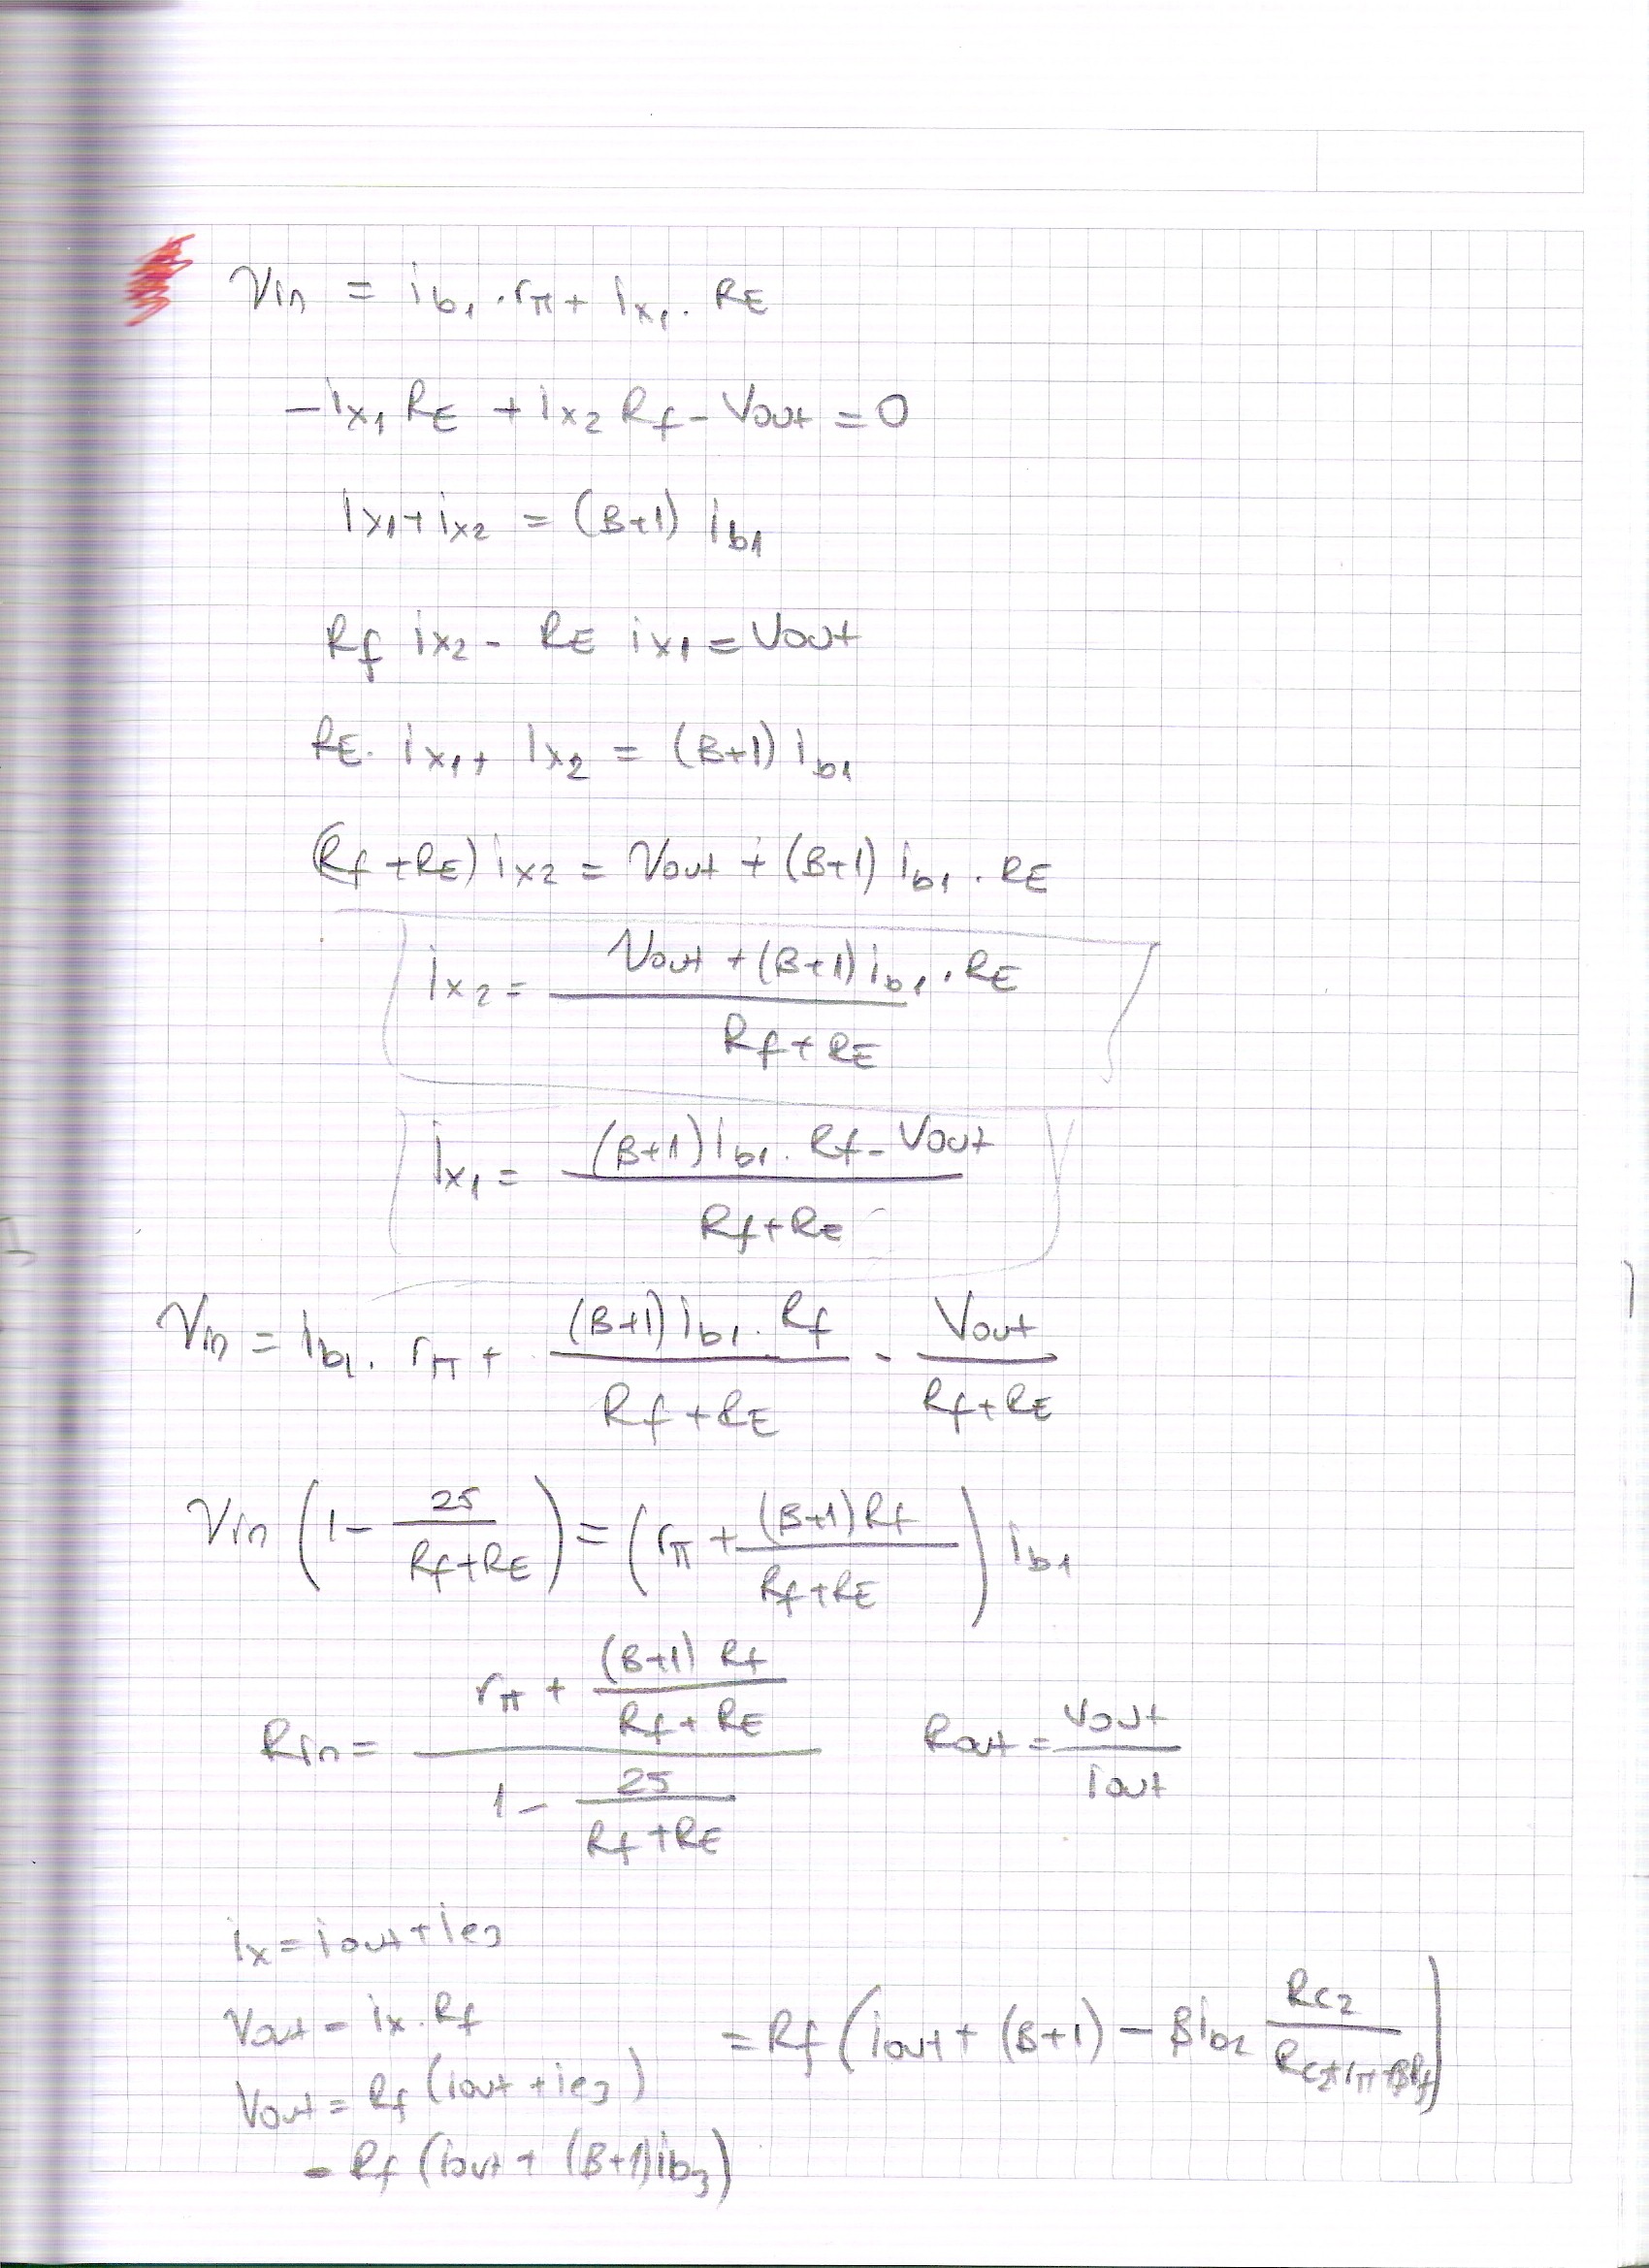 Vin = ib1 . rπ + ix1 . RE
-ix1 RE + ix2 Rf - Vout = 0
ix1 + ix2 = (B+1) ib1
Rf ix2 - RE ix1 = Vout
RE. ix1 + ix2 = (B+1) ib1
(Rf + RE) ix2 = Vout + (B+1) ib1 . RE
ix2 = (Vout + (B+1) ib1 . RE) / (Rf + RE)
ix1 = ((B+1) ib1 . Rf - Vout) / (Rf + RE)
Vin = ib1 . rπ + ((B+1) ib1 . Rf) / (Rf + RE) - Vout / (Rf + RE)
Vin (1 - 25 / (Rf + RE)) = (rπ + (B+1) Rf / (Rf + RE)) ib1
Rin = (rπ + (B+1) Rf / (Rf + RE)) / (1 - 25 / (Rf + RE))
Rout = Vout / iout
ix = iout + ie3
Vout = ix . Rf
Vout = Rf (iout + ie3)
= Rf (iout + (B+1) ib3)
= Rf (iout + (B+1) - βib2 RC2 / (RC2 + rπ + βRf))